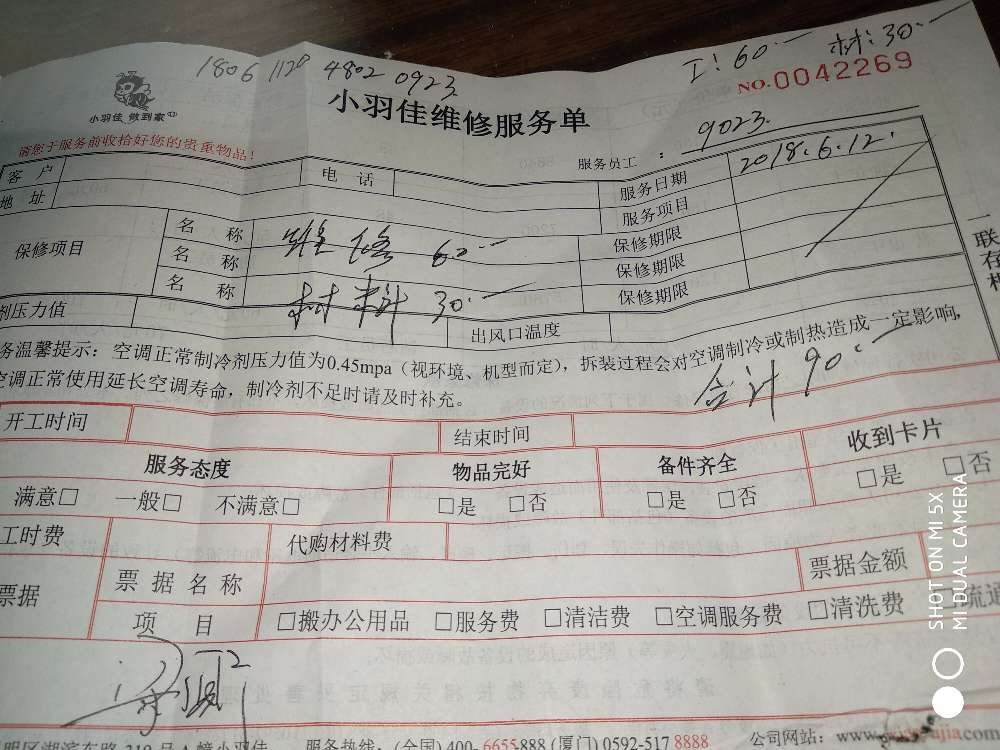 1806 1120 4802 0923
工:60.— 材:30.—
小羽佳 做到家
小羽佳维修服务单
NO.0042269
请您于服务前收拾好您的贵重物品!
服务员工 : 9023.
客 户 电 话 服务日期 2018.6.12.
地 址 服务项目
保修项目 名 称 维修 60.— 保修期限
名 称 保修期限
名 称 材料 30.— 保修期限
剂压力值 出风口温度
一联存根
务温馨提示:空调正常制冷剂压力值为0.45mpa(视环境、机型而定),拆装过程会对空调制冷或制热造成一定影响,
空调正常使用延长空调寿命,制冷剂不足时请及时补充。
合计 90.—
开工时间 结束时间
服务态度 物品完好 备件齐全 收到卡片
满意□ 一般□ 不满意□ □是 □否 □是 □否 □是 □否
工时费 代购材料费
票据 票 据 名 称 票据金额
项 目 □搬办公用品 □服务费 □清洁费 □空调服务费 □清洗费 □流通
明区湖滨东路319号A幢小羽佳 服务热线:(全国)400-6655-888 (厦门) 0592-517 8888 公司网站:
SHOT ON MI 5X
MI DUAL CAMERA